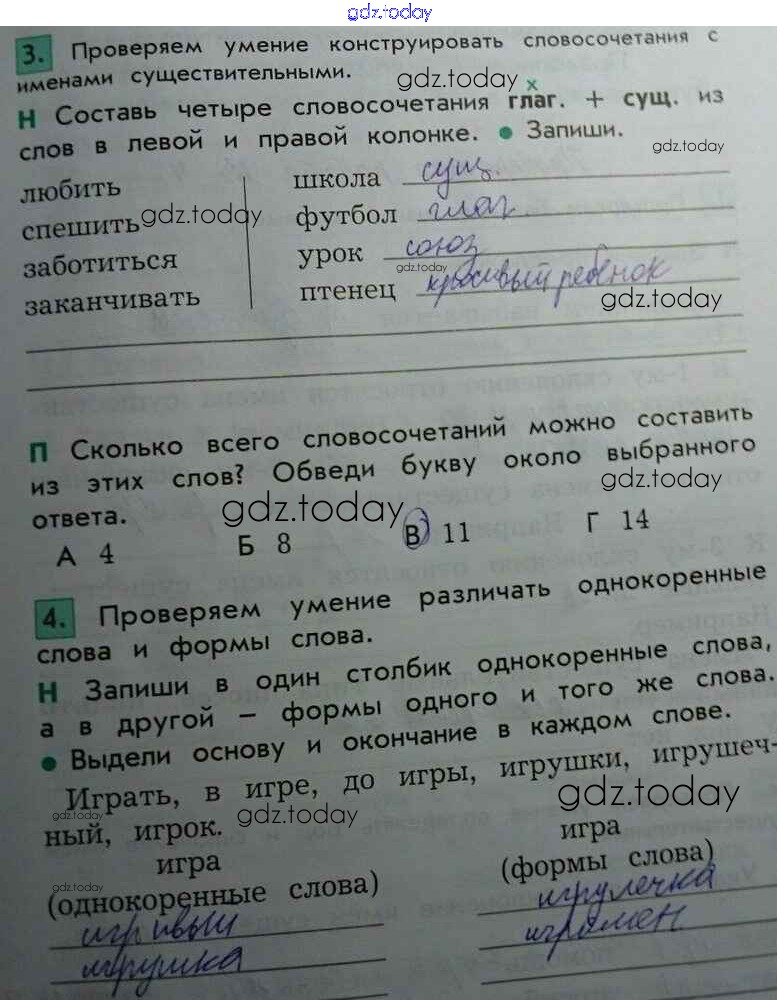 gdz.today
3. Проверяем умение конструировать словосочетания с
именами существительными.
gdz.today
х
Н Составь четыре словосочетания глаг. + сущ. из
слов в левой и правой колонке. ● Запиши.
gdz.today
любить школа сущ.
спешить gdz.today футбол глаг.
заботиться урок союз
gdz.today
заканчивать птенец красивый ребёнок
gdz.today
П Сколько всего словосочетаний можно составить
из этих слов? Обведи букву около выбранного
gdz.today
ответа.
gdz.today
А 4 Б 8 В 11 Г 14
4. Проверяем умение различать однокоренные
слова и формы слова.
Н Запиши в один столбик однокоренные слова,
а в другой – формы одного и того же слова.
● Выдели основу и окончание в каждом слове.
Играть, в игре, до игры, игрушки, игрушеч-
ный, игрок.
gdz.today
gdz.today
игра игра
gdz.today
(однокоренные слова) (формы слова)
игривый игрулечка
игрушка игромен